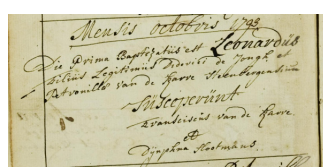 Mensis octobris 1793
Die Prima Baptisatus est Leonardus
filius Legitimus Judoci de Jongh et
Petronilla van de Karre Stebenbergensium
Susceperunt
Franciscus van de Karre
et
Dÿmphna Slootmans.